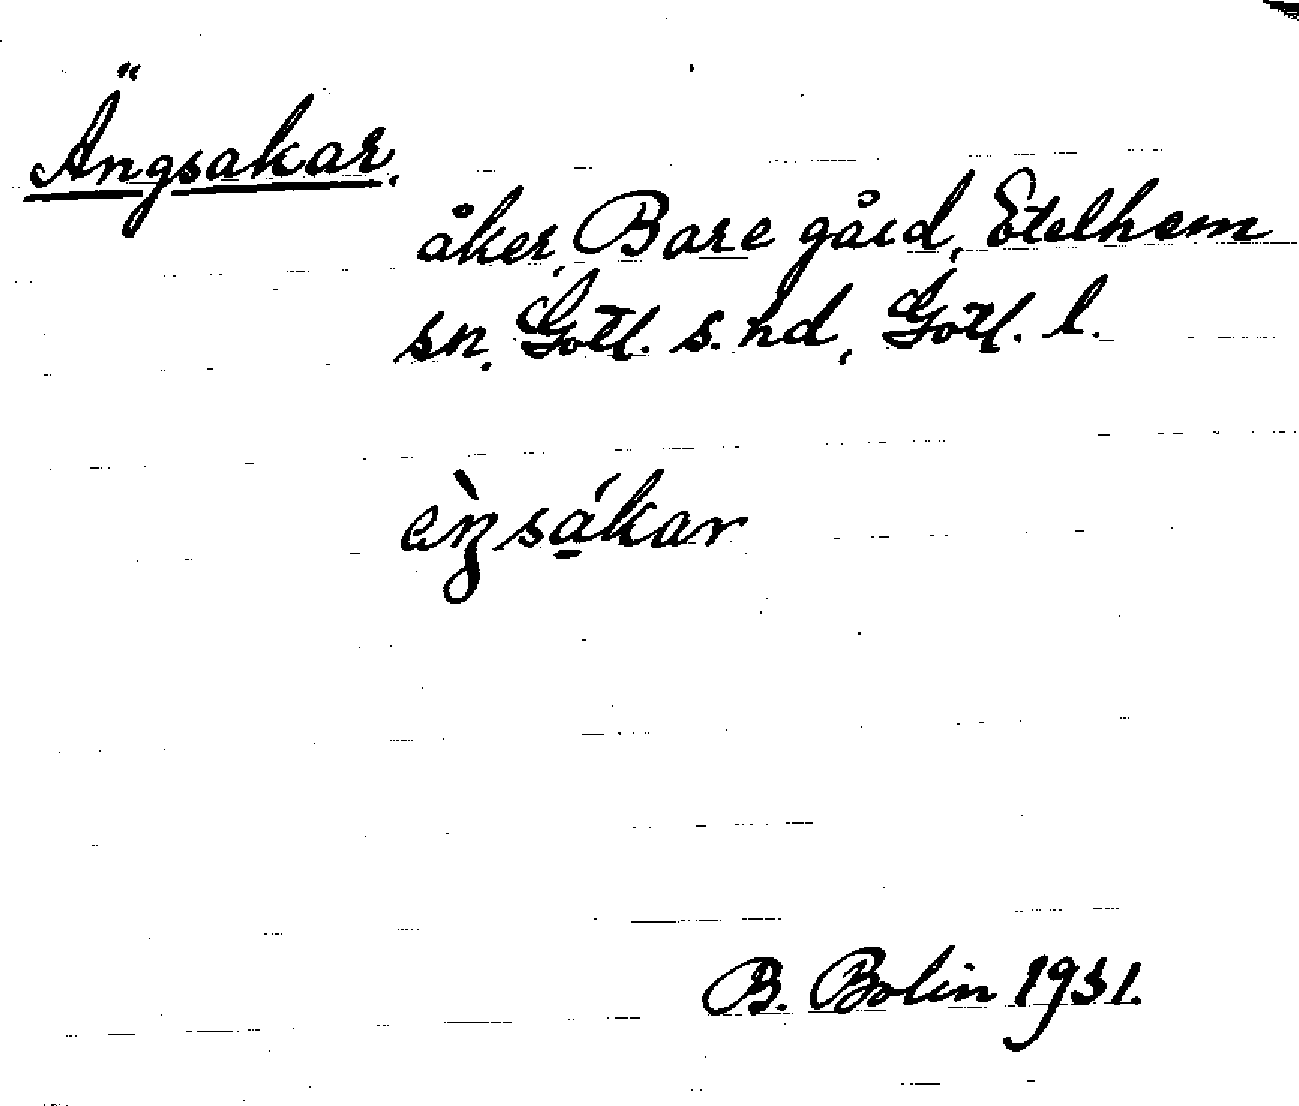 Ängsakar.
åker, Bare gård, Etelhem
sn, Gotl. s. hd, Gotl. l.
èŋsá̱kar
B. Bolin 1931.